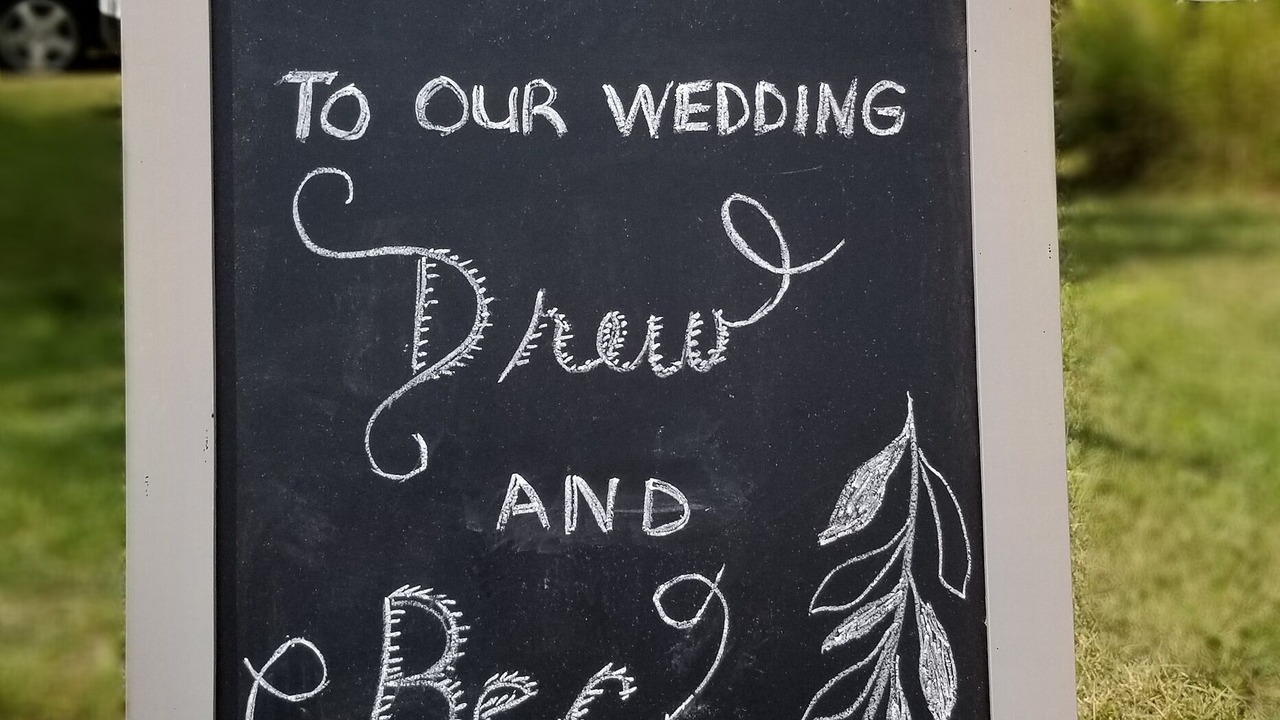 TO OUR WEDDING
Drew
AND